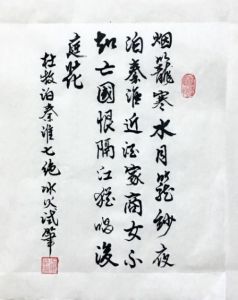 烟籠寒水月籠紗夜
泊秦淮近酒家商女不
知亡國恨隔江猶唱後
庭花
杜牧泊秦淮七绝冰火试笔